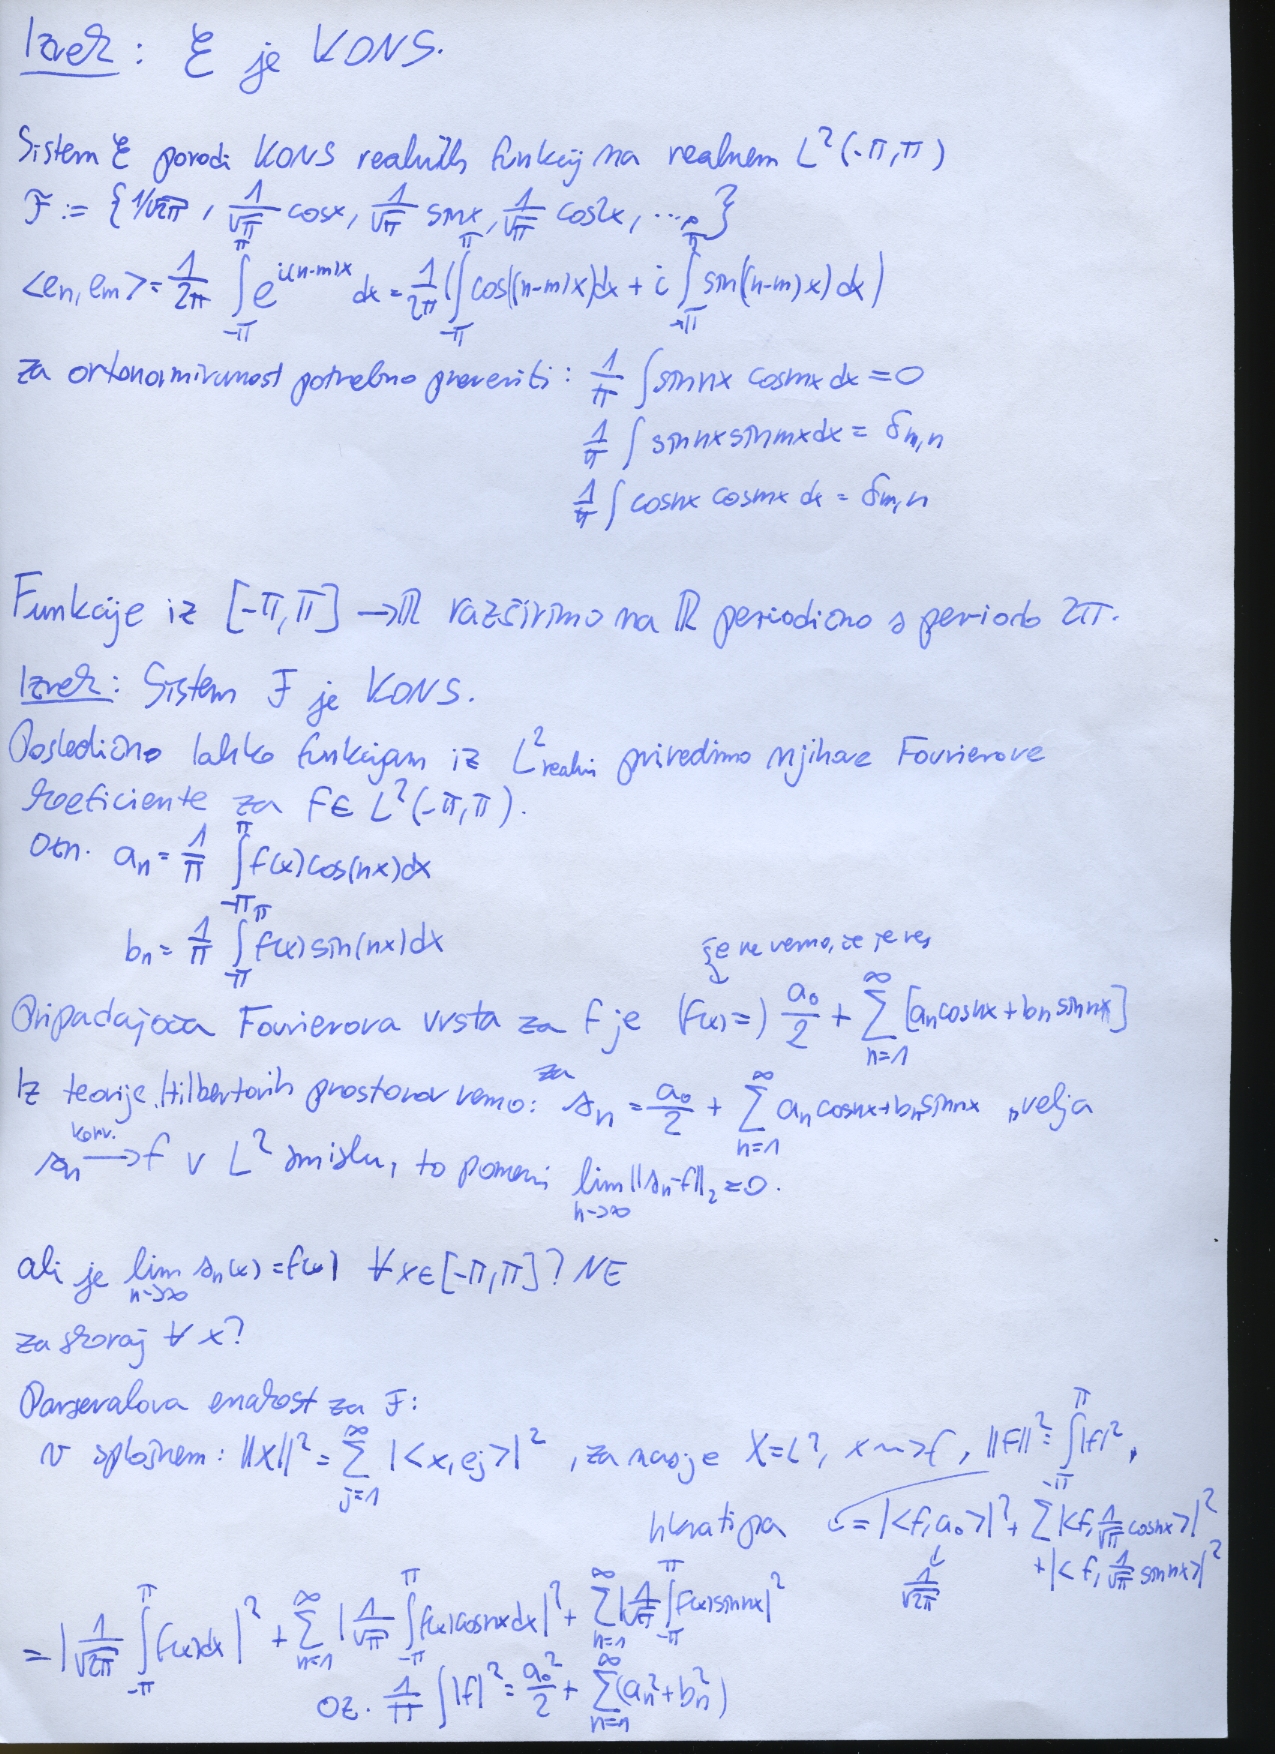 Izrek: ℰ je KONS.
Sistem ℰ porodi KONS realnih funkcij na realnem L²(-π,π)
ℱ := {1/√2π, 1/√π cosx, 1/√π sinx, 1/√π cos2x, ...}
<eₙ,eₘ> = 1/2π ∫_{-π}^{π} e^{i(n-m)x} dx = 1/2π (∫_{-π}^{π} cos((n-m)x)dx + i ∫_{-π}^{π} sin((n-m)x)dx)
za ortonormiranost potrebno preveriti: 1/π ∫ sinnx cosmx dx = 0
1/π ∫ sinnx sinmx dx = δ_{m,n}
1/π ∫ cosnx cosmx dx = δ_{m,n}
Funkcije iz [-π,π] → ℝ razširimo na ℝ periodično s periodo 2π.
Izrek: Sistem ℱ je KONS.
Posledično lahko funkcijam iz L²_{realni} priredimo njihove Fourierove
koeficiente za f ∈ L²(-π,π).
Ozn. aₙ = 1/π ∫_{-π}^{π} f(x)cos(nx)dx
bₙ = 1/π ∫_{-π}^{π} f(x)sin(nx)dx
še ne vemo, če je res
Pripadajoča Fourierova vrsta za f je (f(x)=) a₀/2 + ∑_{n=1}^{∞} [aₙcosnx + bₙsinnx]
Iz teorije Hilbertovih prostorov vemo: za sₙ = a₀/2 + ∑_{n=1}^{∞} aₙcosnx + bₙsinnx, velja
sₙ →(konv.) f v L² smislu, to pomeni lim_{n→∞} ||sₙ-f||₂ = 0.
ali je lim_{n→∞} sₙ(x) = f(x) ∀x∈[-π,π]? NE
za skoraj ∀ x?
Parsevalova enakost za ℱ:
v splošnem: ||x||² = ∑_{j=1}^{∞} |<x,eⱼ>|², za nas je X=L², x ⇝ f, ||f||² = ∫_{-π}^{π} |f|²,
hkrati pa = |<f,a₀>|² + ∑ |<f, 1/√π cosnx>|²
1/√2π + |<f, 1/√π sinnx>|²
= |1/√2π ∫_{-π}^{π} f(x)dx|² + ∑_{n=1}^{∞} |1/√π ∫_{-π}^{π} f(x)cosnxdx|² + ∑_{n=1}^{∞} |1/√π ∫_{-π}^{π} f(x)sinnx|²
oz. 1/π ∫ |f|² = a₀²/2 + ∑_{n=1}^{∞} (aₙ² + bₙ²)